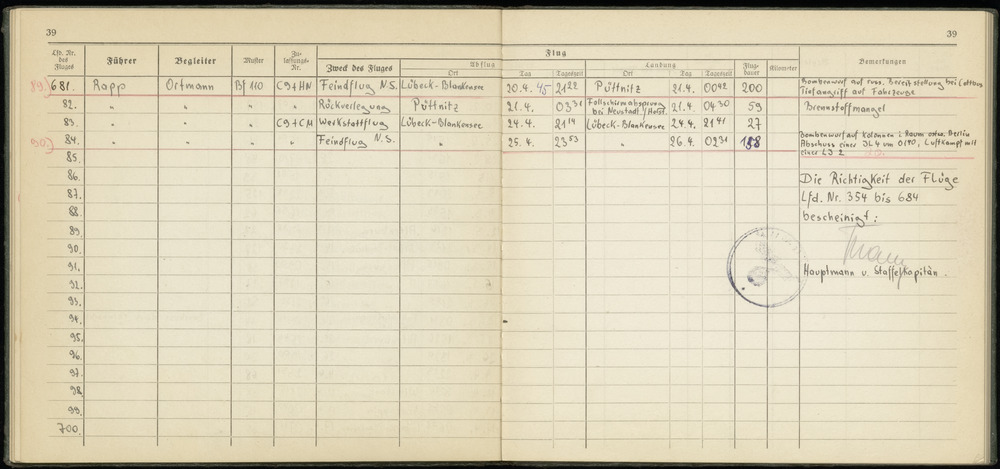 39
39
Lfd. Nr. des Fluges
Führer
Begleiter
Muster
Zu-lassungs-Nr.
Zweck des Fluges
Flug
Abflug
Ort
Tag
Tageszeit
Landung
Ort
Tag
Tageszeit
Flug-dauer
Kilometer
Bemerkungen
89.) 681. Rapp Ortmann Bf 110 C9+HN Feindflug N.S. Lübeck-Blankensee 20.4. 45 2122 Püttnitz 21.4. 0042 200 Bombenwurf auf russ. Bereitstellung bei Cottbus
Tiefangriff auf Fahrzeuge
82. " " " " Rückverlegung Püttnitz 21.4. 0331 Fallschirmabsprung bei Neustadt/Holst. 21.4. 0430 59 Brennstoffmangel
83. " " " C9+CM Werkstattflug Lübeck-Blankensee 24.4. 2114 Lübeck-Blankensee 24.4. 2141 27
84. " " " " Feindflug N.S. " 25.4. 2353 " 26.4. 0231 158 Bombenwurf auf Kolonnen i. Raum ostw. Berlin
Abschuss einer JL 4 um 0140, Luftkampf mit
einer LJ 2
85.
86.
Die Richtigkeit der Flüge
87.
Lfd. Nr. 354 bis 684
88.
bescheinigt:
89.
90.
91.
Hauptmann u. Staffelkapitän.
92.
93.
94.
95.
96.
97.
98.
99.
700.